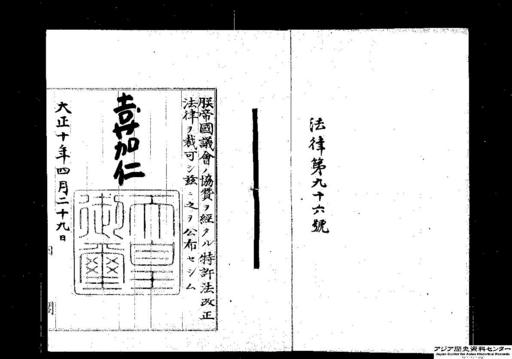 法律第九十六號
朕帝國議會ノ協賛ヲ經タル特許法改正
法律ヲ裁可シ茲ニ之ヲ公布セシム
嘉仁
天皇
御璽
大正十年四月二十九日
アジア歴史資料センター
Japan Center for Asian Historical Records